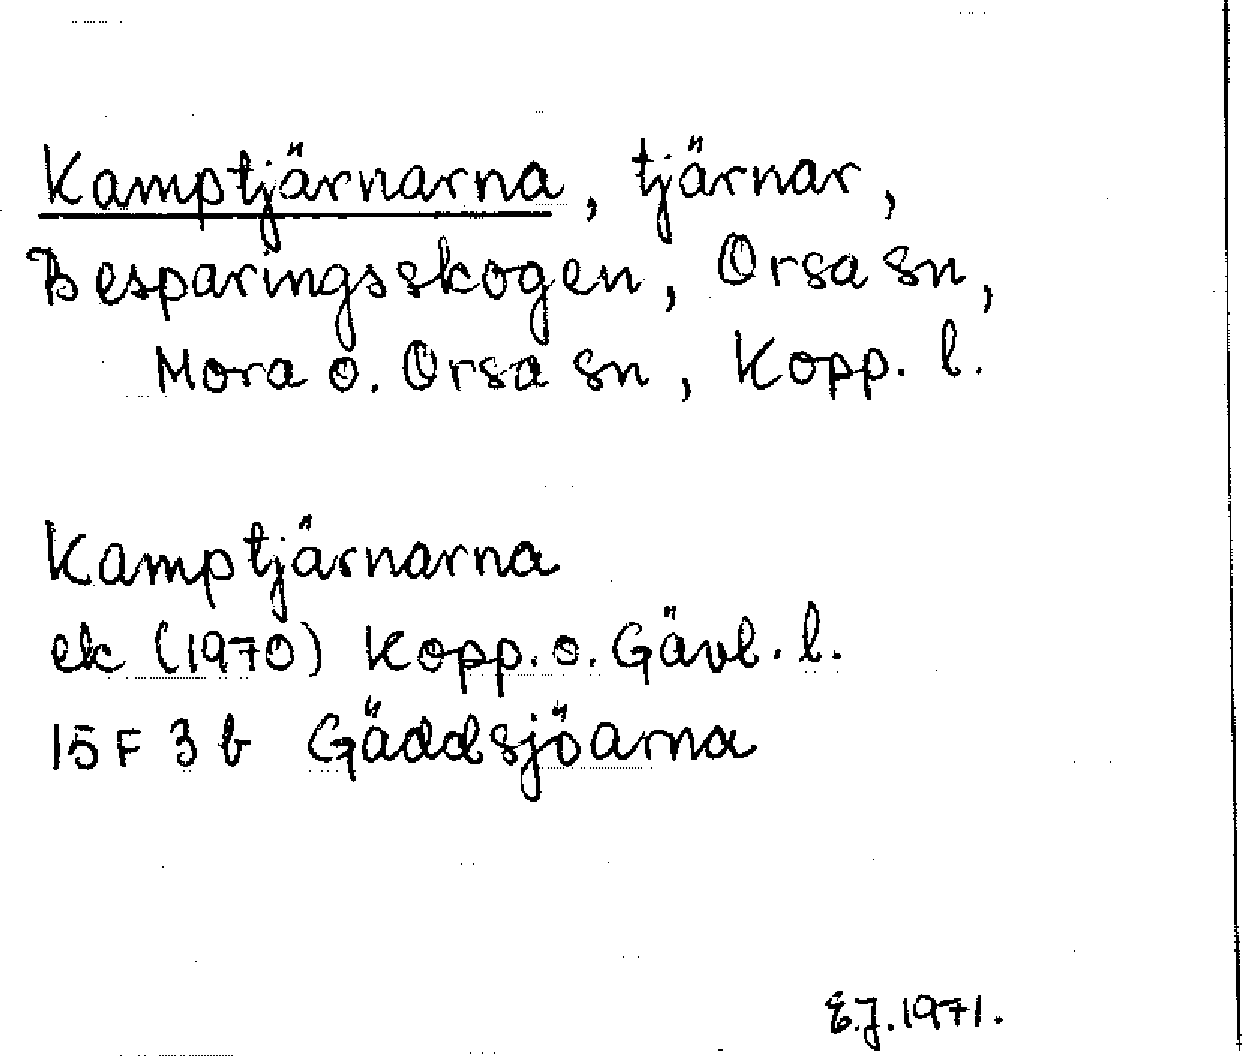 Kamptjärnarna, tjärnar,
Besparingsskogen, Orsa sn,
Mora o. Orsa sn, Kopp. l.
Kamptjärnarna
ek (1970) Kopp. o. Gävl. l.
15 F 3 b Gäddsjöarna
E.J. 1971.